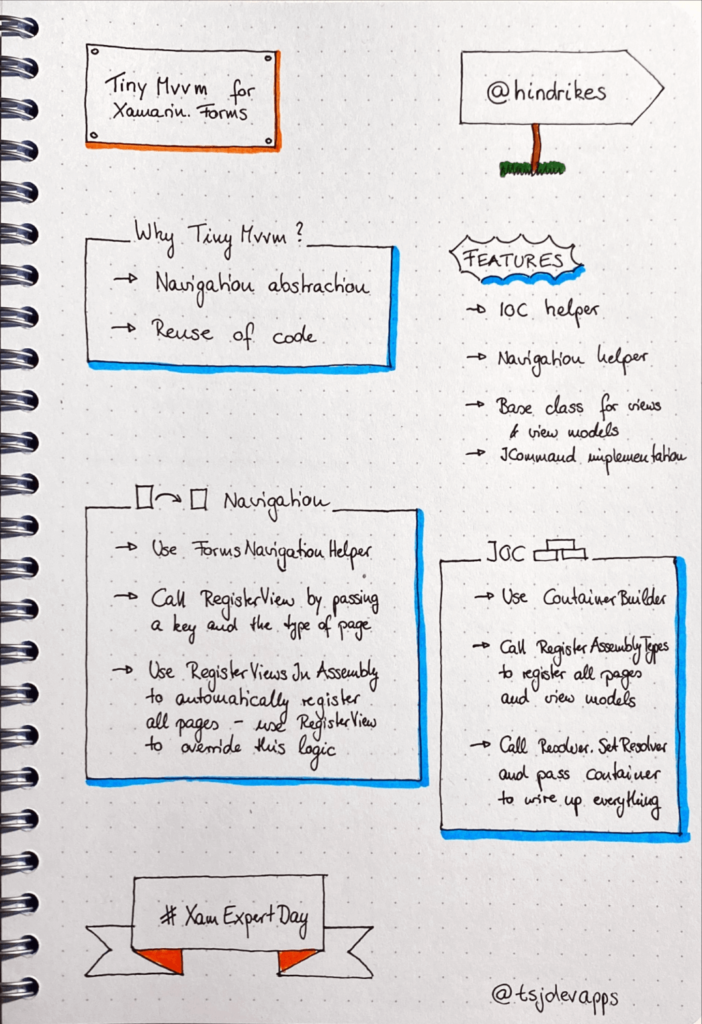 Tiny Mvvm for
Xamarin.Forms
@hindrikes
Why Tiny Mvvm?
→ Navigation abstraction
→ Reuse of code
FEATURES
→ IOC helper
→ Navigation helper
→ Base class for views
& view models
→ ICommand implementation
Navigation
→ Use FormsNavigationHelper
→ Call RegisterView by passing
a key and the type of page
→ Use RegisterViewsInAssembly
to automatically register
all pages - use RegisterView
to override this logic
IOC
→ Use ContainerBuilder
→ Call RegisterAssemblyTypes
to register all pages
and view models
→ Call Resolver.SetResolver
and pass container
to wire up everything
# XamExpertDay
@tsjdevapps